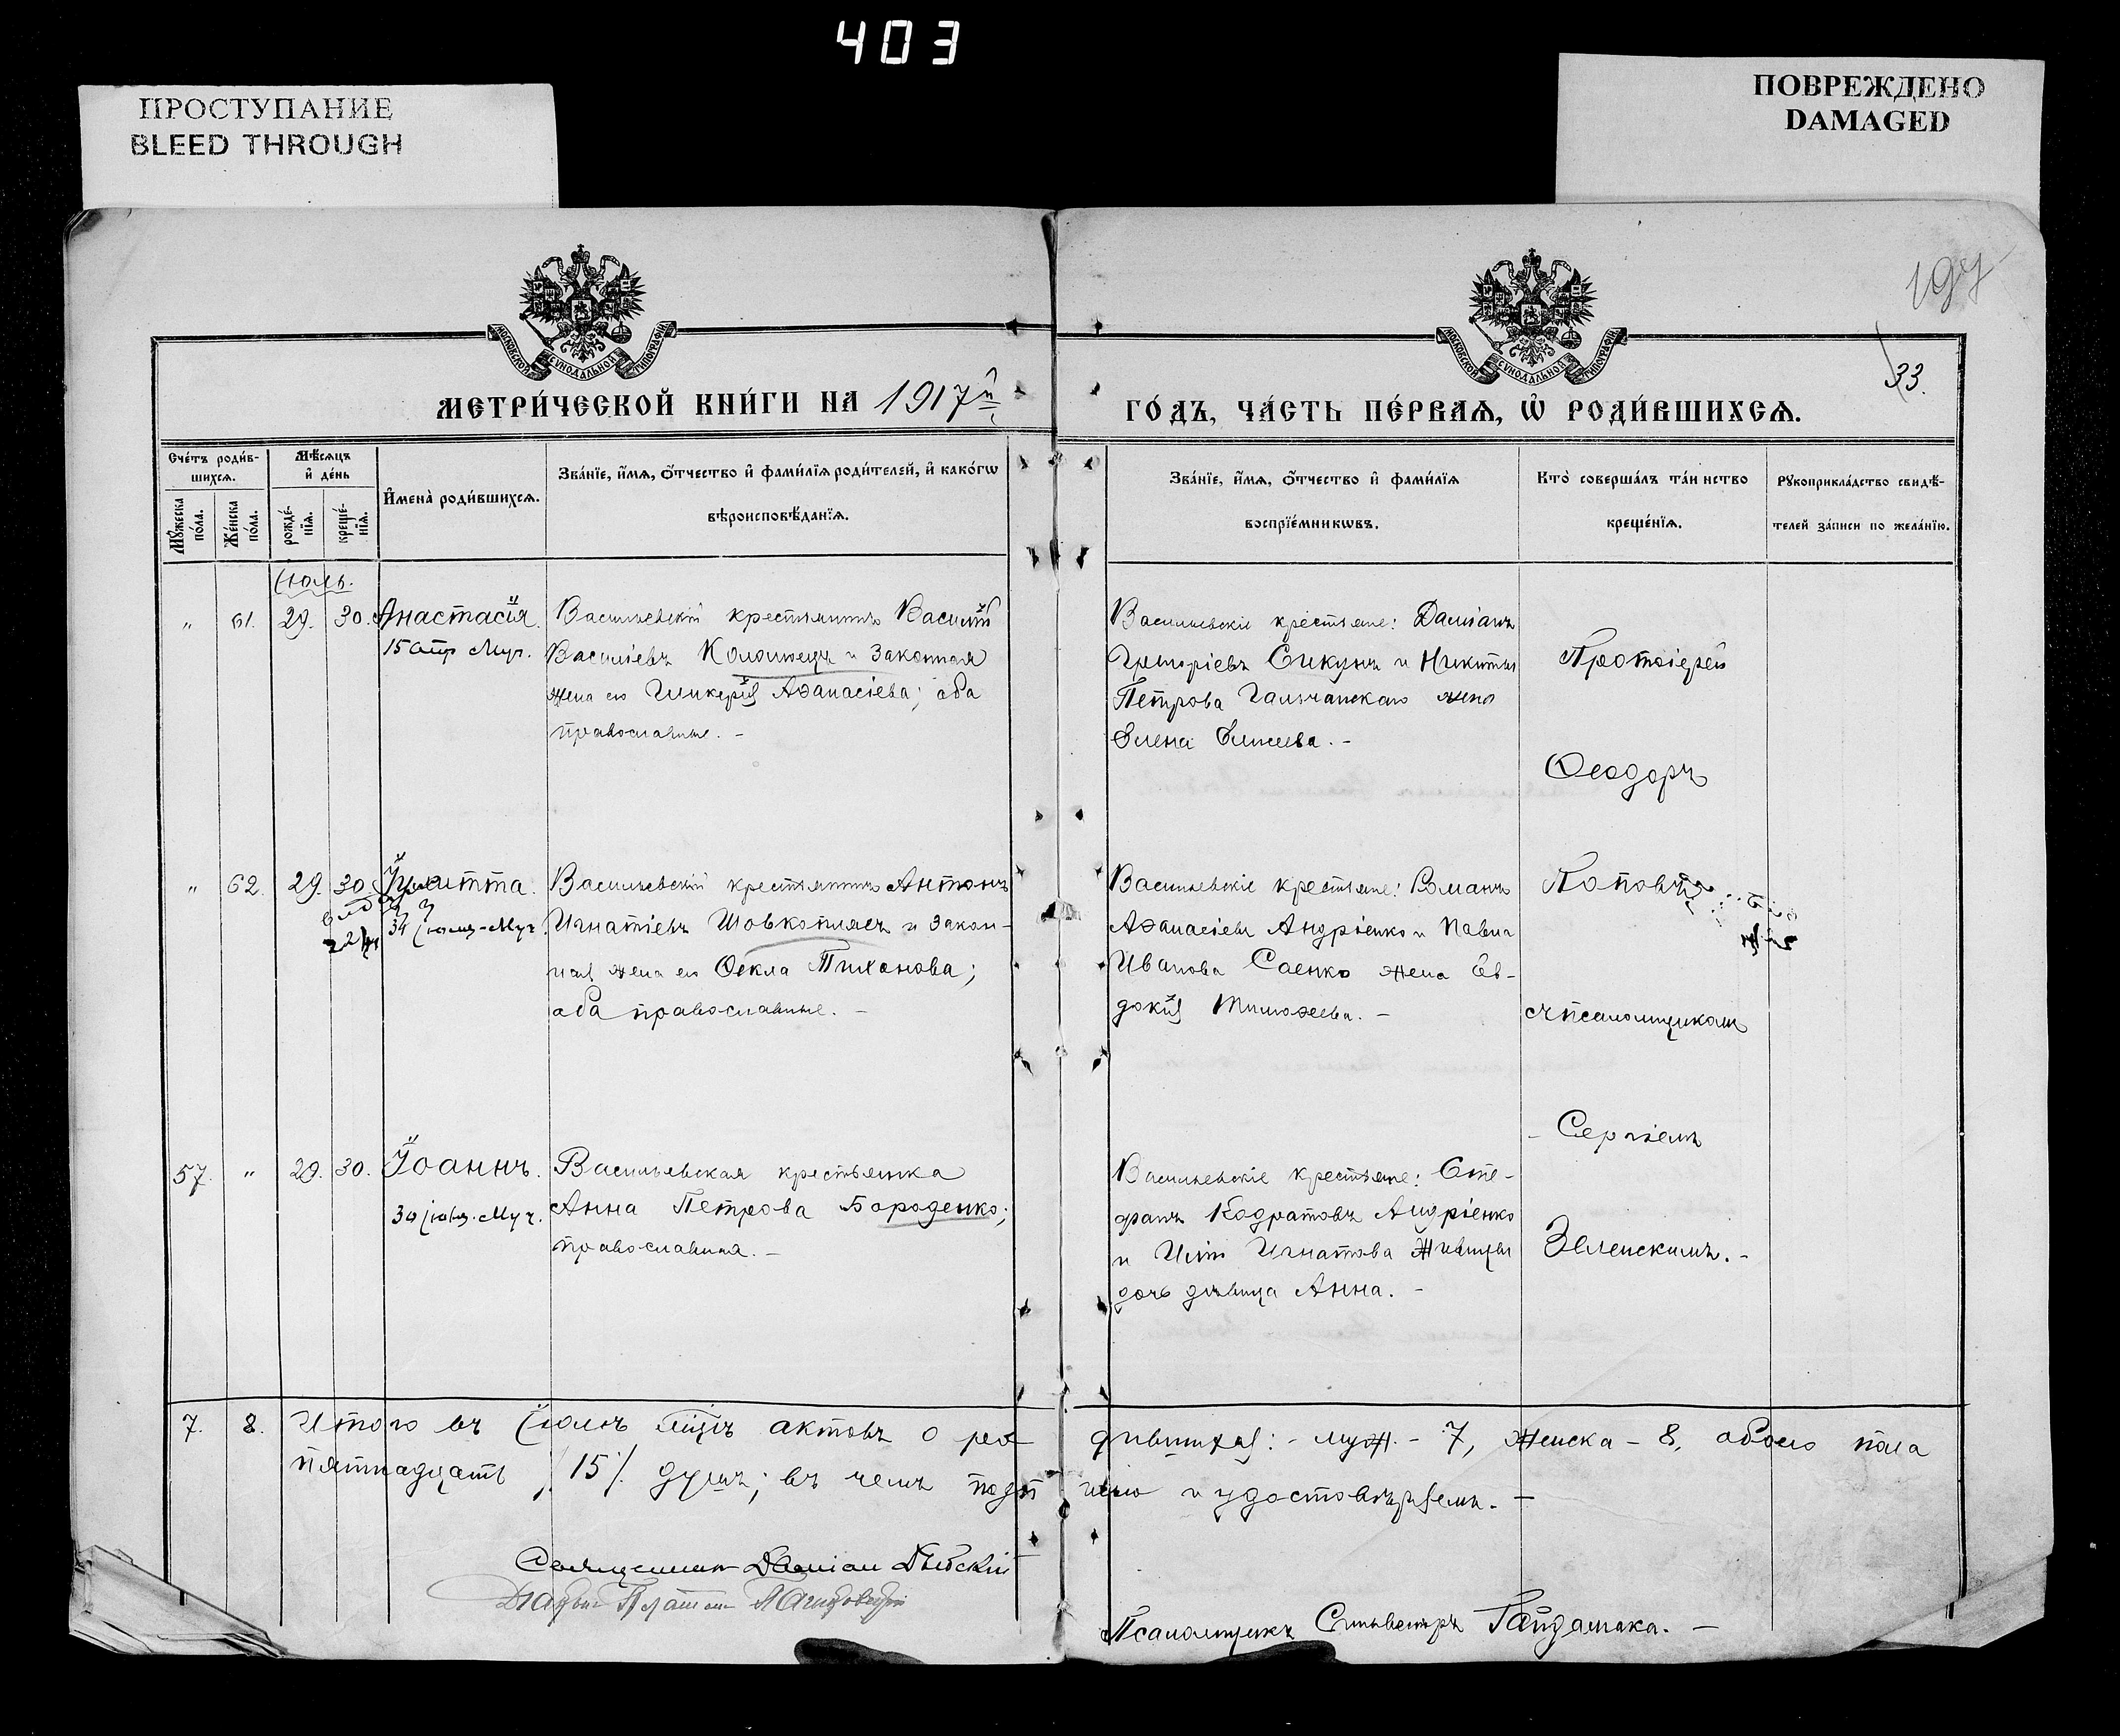 403
ПРОСТУПАНИЕ
BLEED THROUGH
ПОВРЕЖДЕНО
DAMAGED
197
33.
МОСКОВСКОЙ СУНОДАЛЬНОЙ ТИПОГРАФІИ
МОСКОВСКОЙ СУНОДАЛЬНОЙ ТИПОГРАФІИ
МЕТРИ́ЧЕСКОЙ КНИ́ГИ НА 1917й
ГО́ДЪ, ЧА́СТЬ ПЕ́РВАѦ, Ѡ҆ РОДИ́ВШИХСѦ.
Сче́тъ роди́в-
шихсѧ.
Мꙋ́жеска по́ла.
Же́нска по́ла.
Мѣ́сѧцъ
и҆ де́нь
рожде́-нїѧ.
креще́-нїѧ.
И҆мена̀ роди́вшихсѧ.
Зва́нїе, и҆́мѧ, ѻ҆́тчество и҆ фами́лїѧ роди́телей, и҆ како́гѡ
вѣроисповѣ́данїѧ.
Зва́нїе, и҆́мѧ, ѻ҆́тчество и҆ фами́лїѧ
воспрїе́мникѡвъ.
Кто̀ соверша́лъ та́инство
креще́нїѧ.
Рꙋкоприкла́дство свидѣ́-
телей за́писи по жела́нїю.
Іюль.
" 61. 29. 30. Анастасія.
15 апр Муч.
Васильевскій крестьянинъ Василій
Василіевъ Коломіецъ и законная
жена его Гликерія Аѳанасіева; оба
православные. -
Васильевскіе крестьяне: Даміанъ
Григоріевъ Сикунъ и Никиты
Петрова Гальчанскаго жена
Елена Елисеева. -
Протоіерей
Ѳеодоръ
" 62. 29. 30 Іулитта.
22/
Муч.
Васильевскій крестьянинъ Антонъ
Игнатіевъ Шовкоплясъ и закон-
ная жена его Ѳекла Тихонова;
оба православные. -
Васильевскіе крестьяне: Романъ
Аѳанасіевъ Андріенко и Павла
Иванова Саенко жена Ев-
докія Тимоѳеева. -
Поповъ
съ псаломщикомъ
57. " 29. 30. Іоаннъ.
30 іюля. Муч.
Васильевская крестьянка
Анна Петрова Бороденко;
православная. -
Васильевскіе крестьяне: Сте-
фанъ Кодратовъ Андріенко
и Игнатова
дочь дѣвица Анна. -
- Сергіемъ
Зеленскимъ. -
7. 8. Итого въ Іюлѣ мѣцѣ актовъ о ро дившихся: - муж. - 7, женска - 8, обоего пола
пятнадцать /15/. душъ; въ чемъ подп исью и удостовѣряемъ. -
Священникъ Даміан
Псаломщикъ Сильвестръ Гайдамака. -